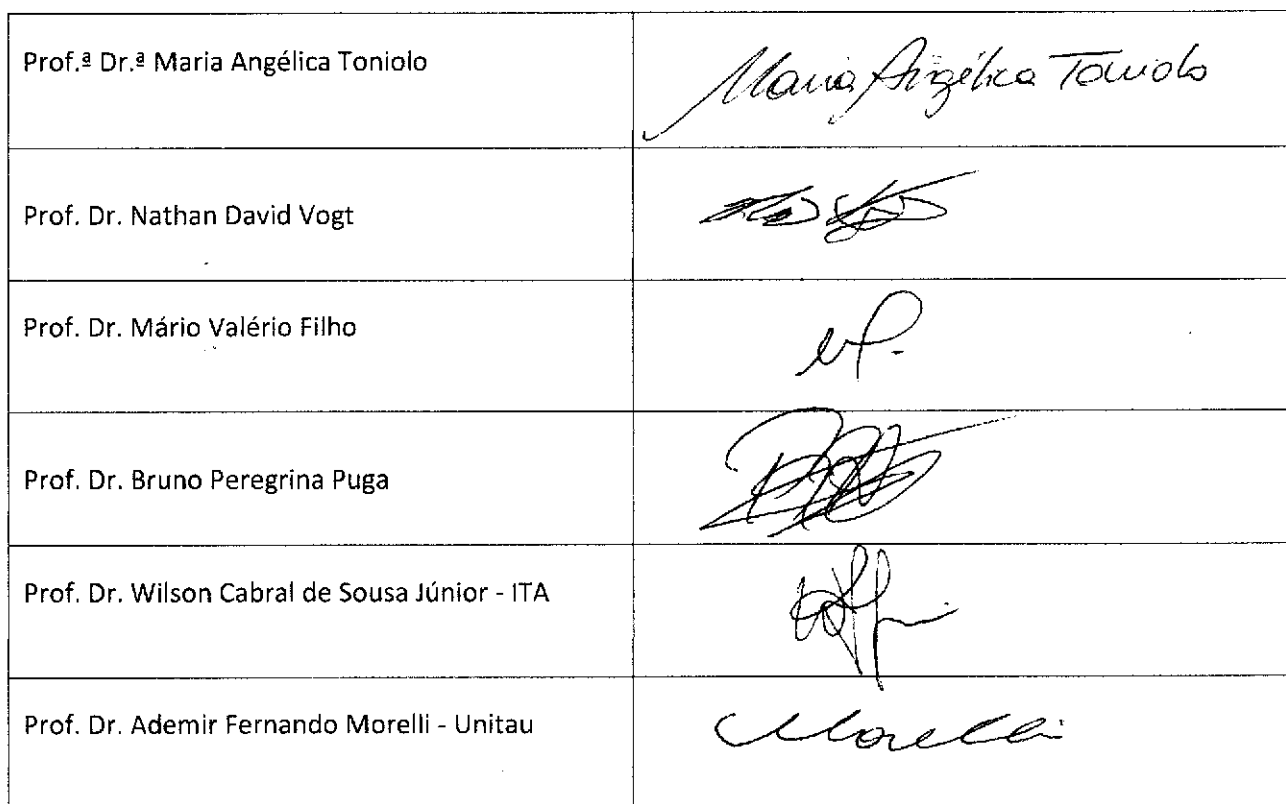 Prof.ª Dr.ª Maria Angélica Toniolo
Maria Angélica Toniolo
Prof. Dr. Nathan David Vogt
Prof. Dr. Mário Valério Filho
Prof. Dr. Bruno Peregrina Puga
Prof. Dr. Wilson Cabral de Sousa Júnior - ITA
Prof. Dr. Ademir Fernando Morelli - Unitau
Morelli